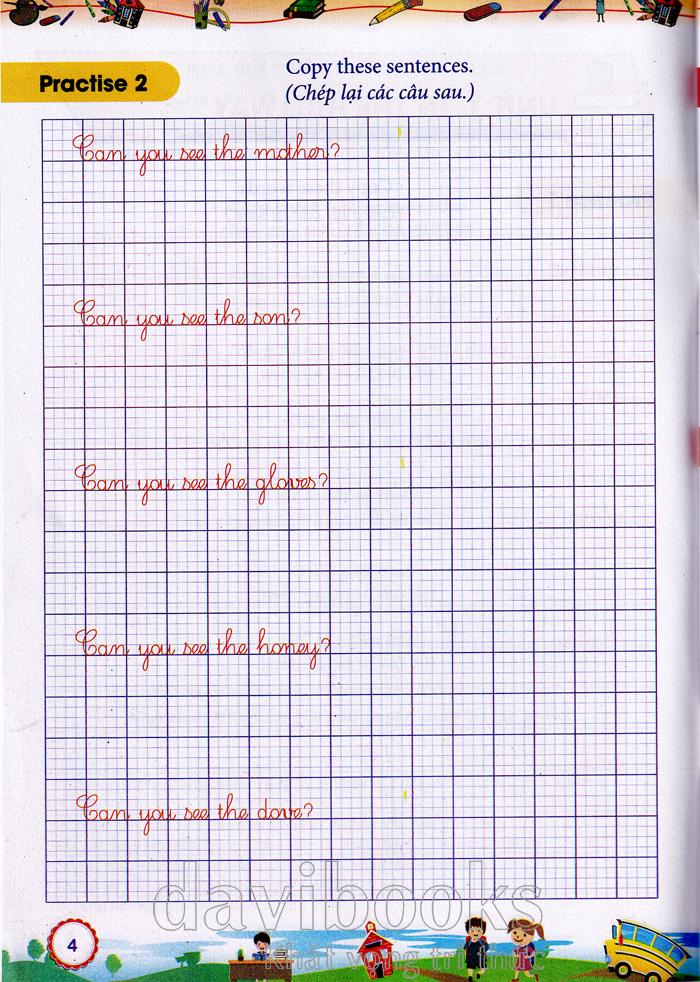 Practise 2
Copy these sentences.
(Chép lại các câu sau.)
Can you see the mother?
Can you see the son?
Can you see the gloves?
Can you see the honey?
Can you see the dove?
davibooks
Khát vọng tri thức
4